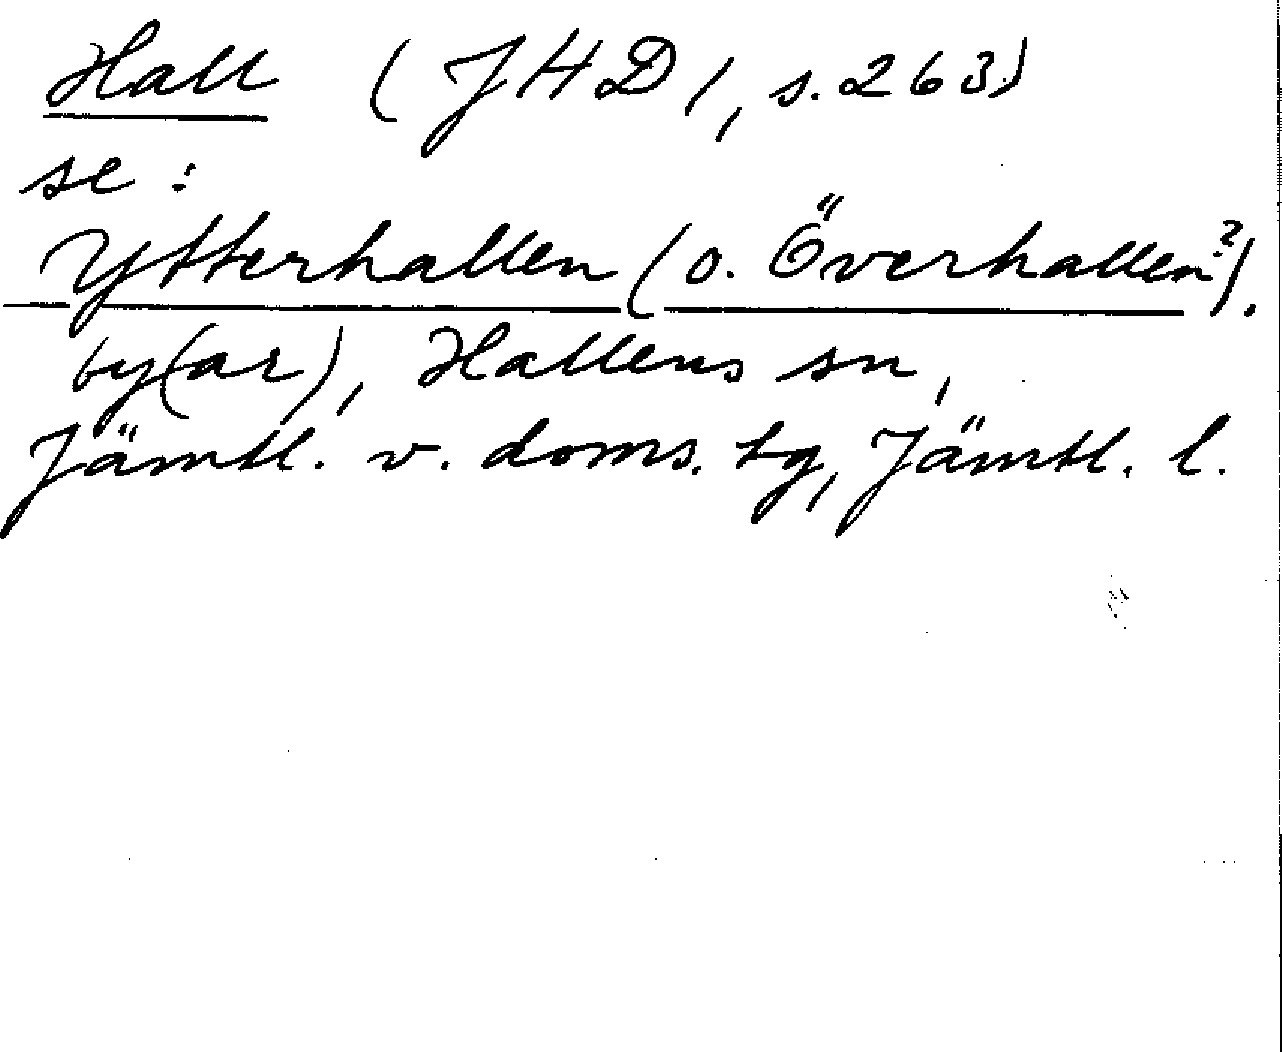 Hall (JHD 1, s. 263)
se:
Ytterhallen (o. Överhallen?).
by(ar), Hallens sn,
Jämtl. v. doms. tg, Jämtl. l.